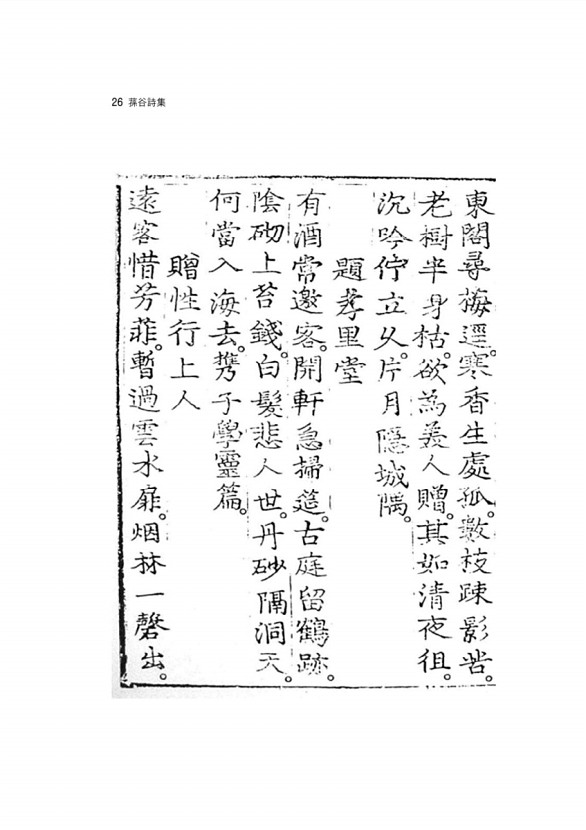 26 蓀谷詩集
東閣尋梅逕。寒香生處孤。數枝踈影岧。
老樹半身枯。欲為美人贈。其如清夜徂。
沉吟佇立久。片月隱城隅。
題孝里堂
有酒常邀客。開軒急掃筵。古庭留鶴跡。
陰砌上苔錢。白髮悲人世。丹砂隔洞天。
何當入海去。携子學靈篇。
贈性行上人
遠客惜芳菲。暫過雲水扉。烟林一磬出。